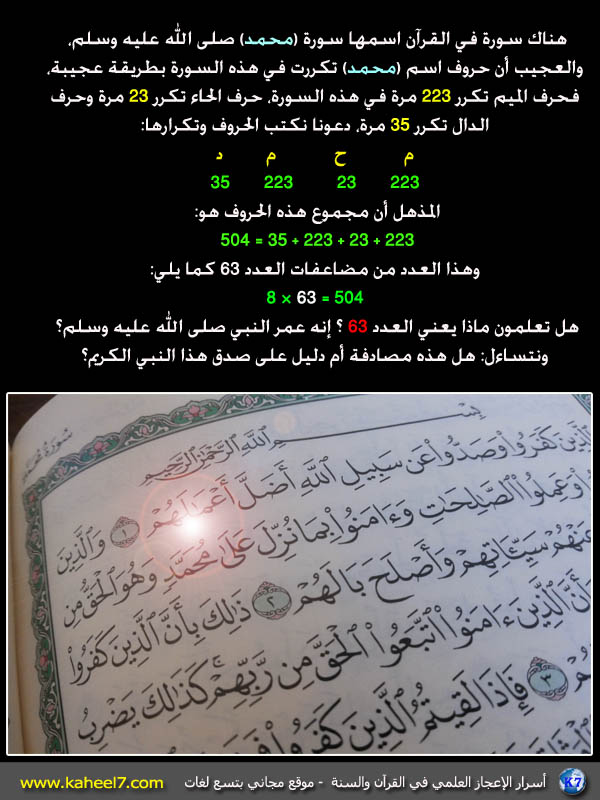 هناك سورة في القرآن اسمها سورة (محمد) صلى الله عليه وسلم،
والعجيب أن حروف اسم (محمد) تكررت في هذه السورة بطريقة عجيبة،
فحرف الميم تكرر 223 مرة في هذه السورة، حرف الحاء تكرر 23 مرة وحرف
الدال تكرر 35 مرة، دعونا نكتب الحروف وتكرارها:
م ح م د
223 23 223 35
المذهل أن مجموع هذه الحروف هو:
223 + 23 + 223 + 35 = 504
وهذا العدد من مضاعفات العدد 63 كما يلي:
504 = 63 × 8
هل تعلمون ماذا يعني العدد 63 ؟ إنه عمر النبي صلى الله عليه وسلم؟
ونتساءل: هل هذه مصادفة أم دليل على صدق هذا النبي الكريم؟
بِسْــــمِ ٱللَّهِ ٱلرَّحْمَٰنِ ٱلرَّحِيمِ
ٱلَّذِينَ كَفَرُوا۟ وَصَدُّوا۟ عَن سَبِيلِ ٱللَّهِ أَضَلَّ أَعْمَٰلَهُمْ ١ وَٱلَّذِينَ
وَعَمِلُوا۟ ٱلصَّٰلِحَٰتِ وَءَامَنُوا۟ بِمَا نُزِّلَ عَلَىٰ مُحَمَّدٍ وَهُوَ ٱلْحَقُّ مِن
عَنْهُمْ سَيِّـَٔاتِهِمْ وَأَصْلَحَ بَالَهُمْ ٢ ذَٰلِكَ بِأَنَّ ٱلَّذِينَ كَفَرُوا۟
وَأَنَّ ٱلَّذِينَ ءَامَنُوا۟ ٱتَّبَعُوا۟ ٱلْحَقَّ مِن رَّبِّهِمْ ۚ كَذَٰلِكَ يَضْرِبُ
٣ فَإِذَا لَقِيتُمُ ٱلَّذِينَ كَفَرُوا۟
أسرار الإعجاز العلمي في القرآن والسنة - موقع مجاني بتسع لغات www.kaheel7.com
K7